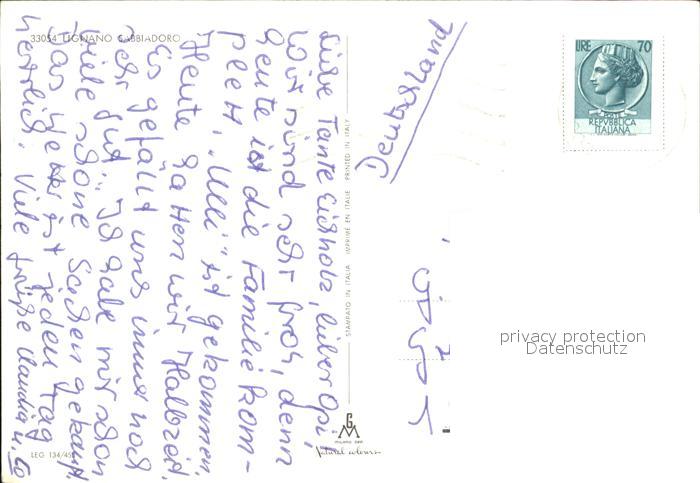 33054 LIGNANO SABBIADORO
Liebe Tante Eichholz, lieber Opi,
Wir sind sehr froh, denn
heute ist die Familie kom-
plett, "Ulli" ist gekommen.
Heute hatten wir Halbzeit.
Es gefällt uns immer noch
sehr gut. Ich habe mir schon
viele schöne Sachen gekauft.
Das Wetter ist jeden Tag
herrlich. Viele Grüße Claudia u. Co
LEG 134/45
STAMPATO IN ITALIA IMPRIMÉ EN ITALIE PRINTED IN ITALY
GM
MILANO
Natural colours
Deutschland
LIRE 70
POSTE
REPVBBLICA
ITALIANA
privacy protection
Datenschutz